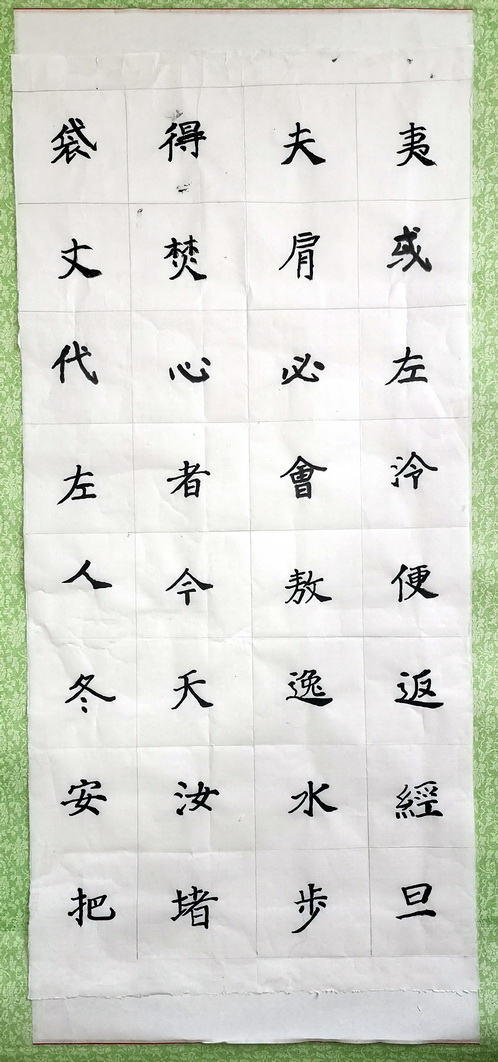 夷或左泠便返經旦
夫肩必會敖逸水步
得焚心者今天汝堵
袋丈代左人冬安把